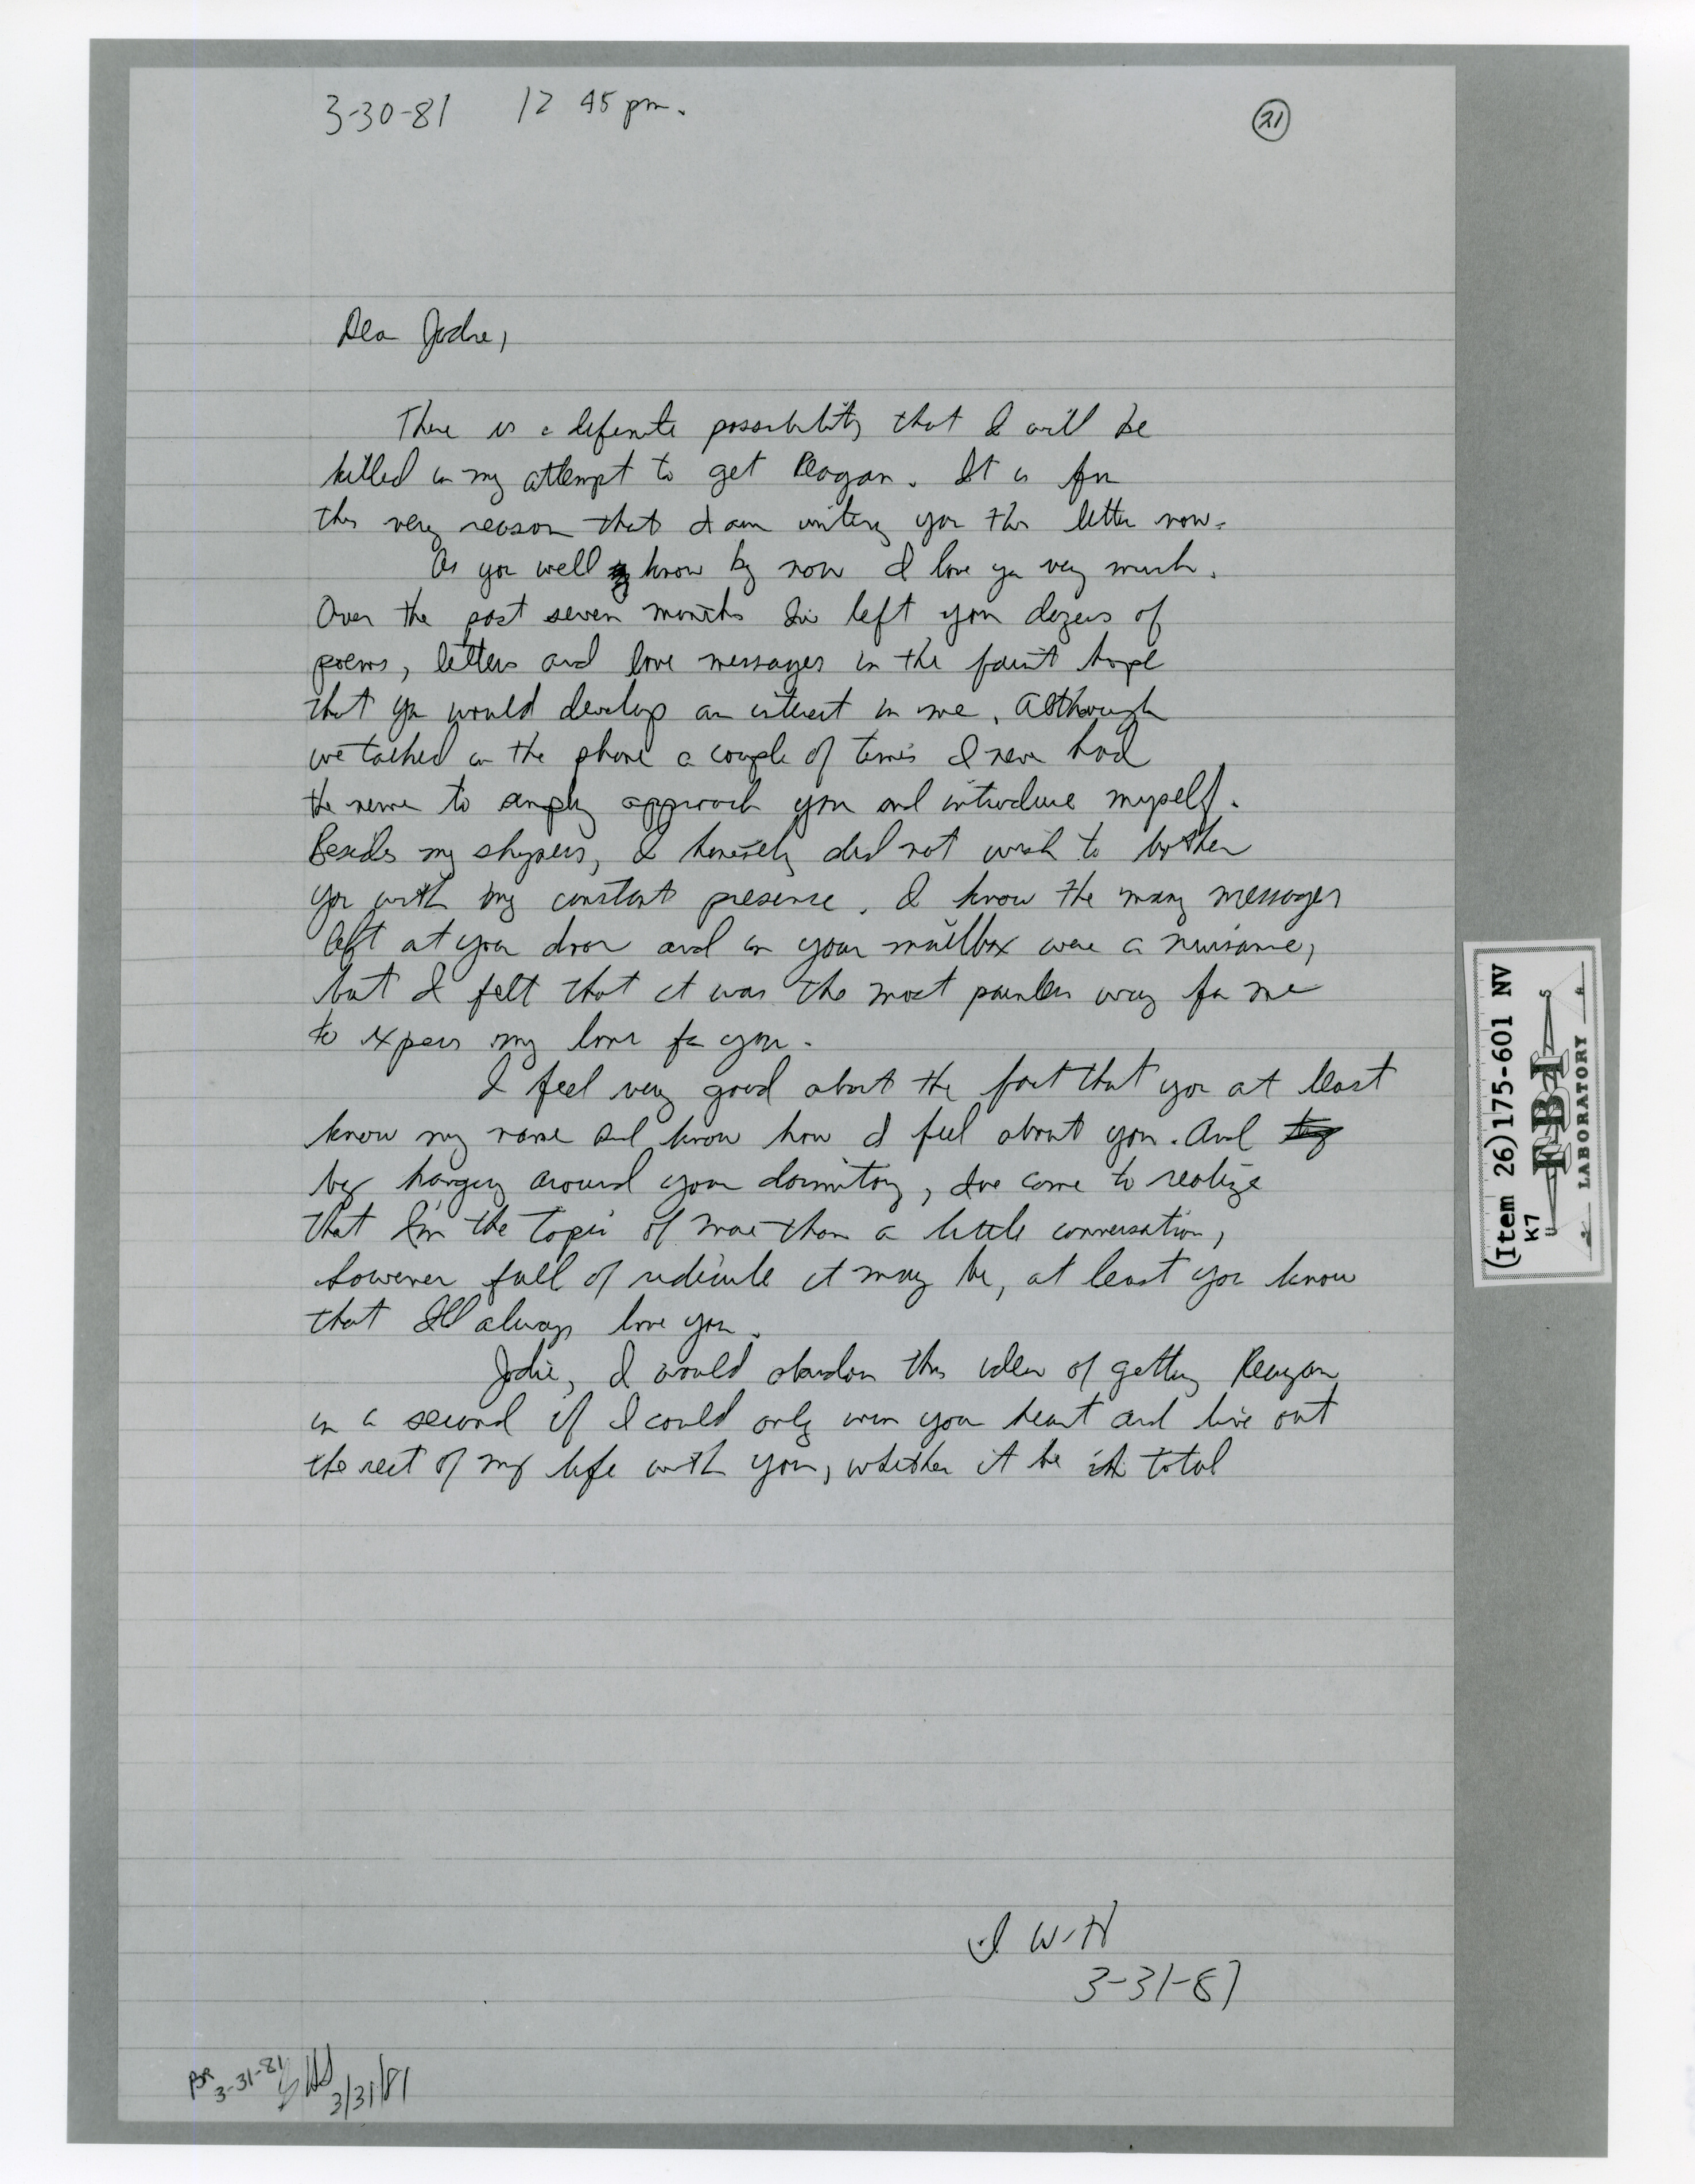 3-30-81 12 45 pm.
21
Dear Jodie,
There is a definite possibility that I will be
killed in my attempt to get Reagan. It is for
this very reason that I am writing you this letter now.
As you well know by now I love you very much.
Over the past seven months I've left you dozens of
poems, letters and love messages in the faint hope
that you would develop an interest in me. Although
we talked on the phone a couple of times I never had
the nerve to simply approach you and introduce myself.
Besides my shyness, I honestly did not wish to bother
you with my constant presence. I know the many messages
left at your door and in your mailbox were a nuisance,
but I felt that it was the most painless way for me
to express my love for you.
I feel very good about the fact that you at least
know my name and know how I feel about you. And
by hanging around your dormitory, I've come to realize
that I'm the topic of more than a little conversation,
however full of ridicule it may be, at least you know
that I'll always love you.
Jodie, I would abandon this idea of getting Reagan
in a second if I could only win your heart and live out
the rest of my life with you, whether it be in total
J W H
3-31-81
BR 3-31-81
3/31/81
(Item 26)175-601 NV
K7
U S
FBI
LABORATORY